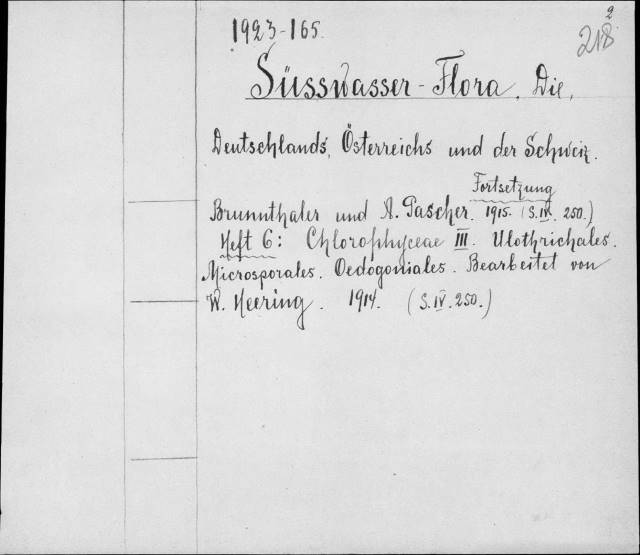 2
1923-165.
218
Süsswasser-Flora, Die,
Deutschlands, Österreichs und der Schweiz.
Fortsetzung
Brunnthaler und A. Pascher. 1915. (S.IV. 250.)
Heft 6: Chlorophyceae III. Ulothrichales.
Microsporales. Oedogoniales. Bearbeitet von
W. Heering. 1914. (S.IV.250.)